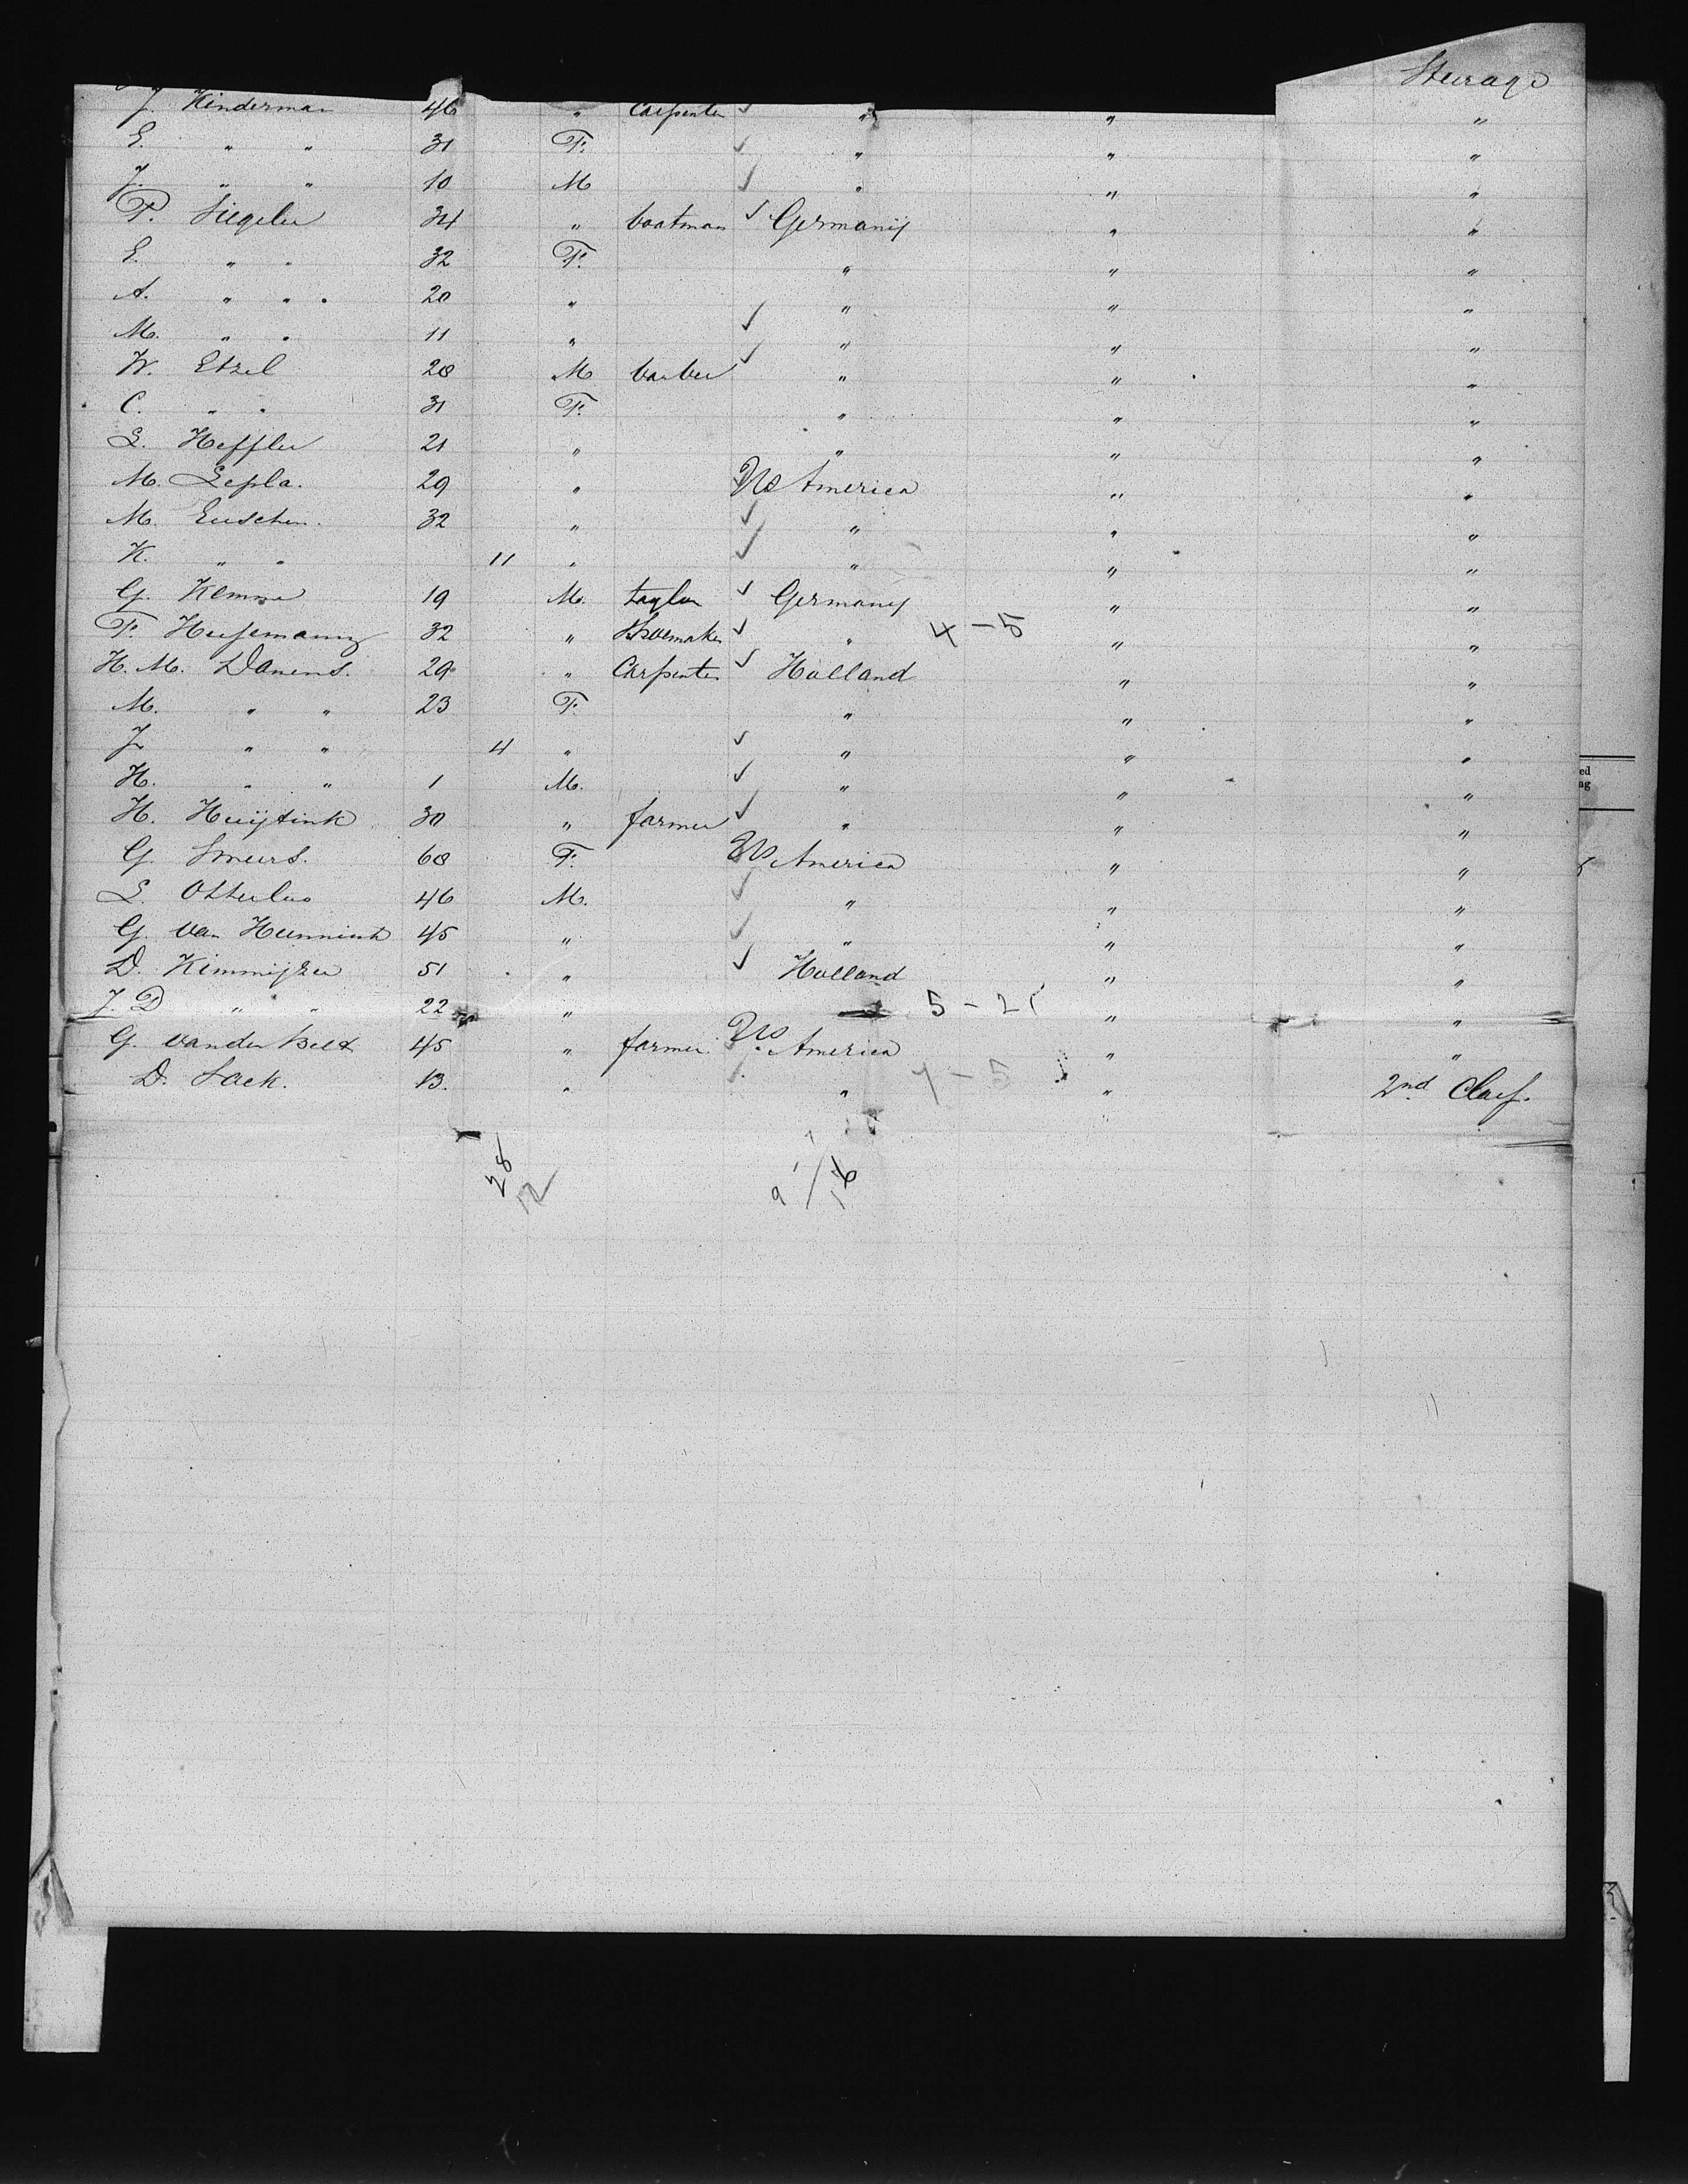 Steerage
J. Kinderman 46 " Carpenter " " "
E. " " 31 F. " " "
J. " " 10 M " " "
P. Siegeler 34 " boatman Germany " "
E. " " 32 F. " " "
A. " " " 20 " " " "
M. " " 11 " " " "
W. Etzel 28 M barber " " "
C. " " 31 F. " " "
L. Heffler 21 " " " "
M. Lepla. 29 " US America " "
M. Euschen. 32 " " " "
K. " " 11 " " " "
G. Klemme 19 M. taylor Germany " "
F. Husemann 32 " Shoemaker " 4-5 " "
H. M. Danens. 29 " Carpenter Holland " "
M. " " 23 F. " " "
J. " " 4 " " " "
H. " " 1 M. " " "
H. Huijtink 30 " farmer " " "
G. Smeers. 68 F. US America " "
L. Otterloo 46 M. " " "
G. van Hunnink 45 " " " "
D. Kimmijzer 51 " Holland " "
J. D " " 22 " 5-21 " "
G. van der Belt 45 " farmer. US America " "
D. Sack. 13. " " 7-5 " 2nd Class.
28
12
9 / 16
ed
ng